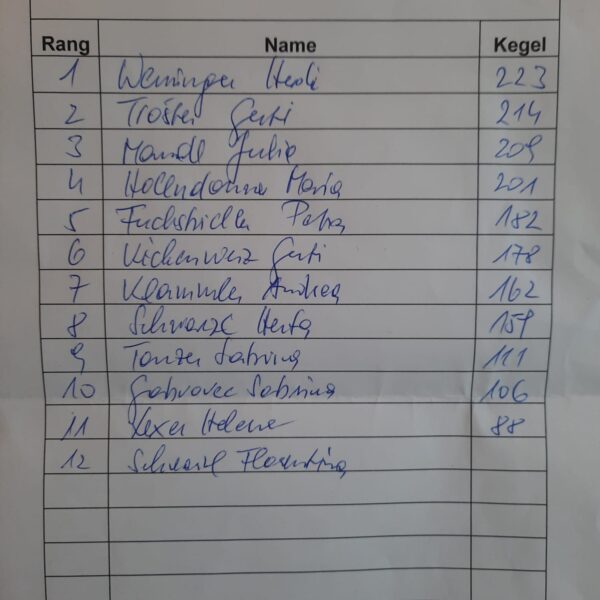 Rang Name Kegel
1 Weninger 223
2 Troster Gerti 214
3 Mandl Julia 209
4 Maria 201
5 Petra 182
6 Gerti 178
7 Klammler Andrea 162
8 Herta 159
9 Tanzer Sabrina 111
10 Gabrovec Sabrina 106
11 Lexer Helene 88
12 Florentina